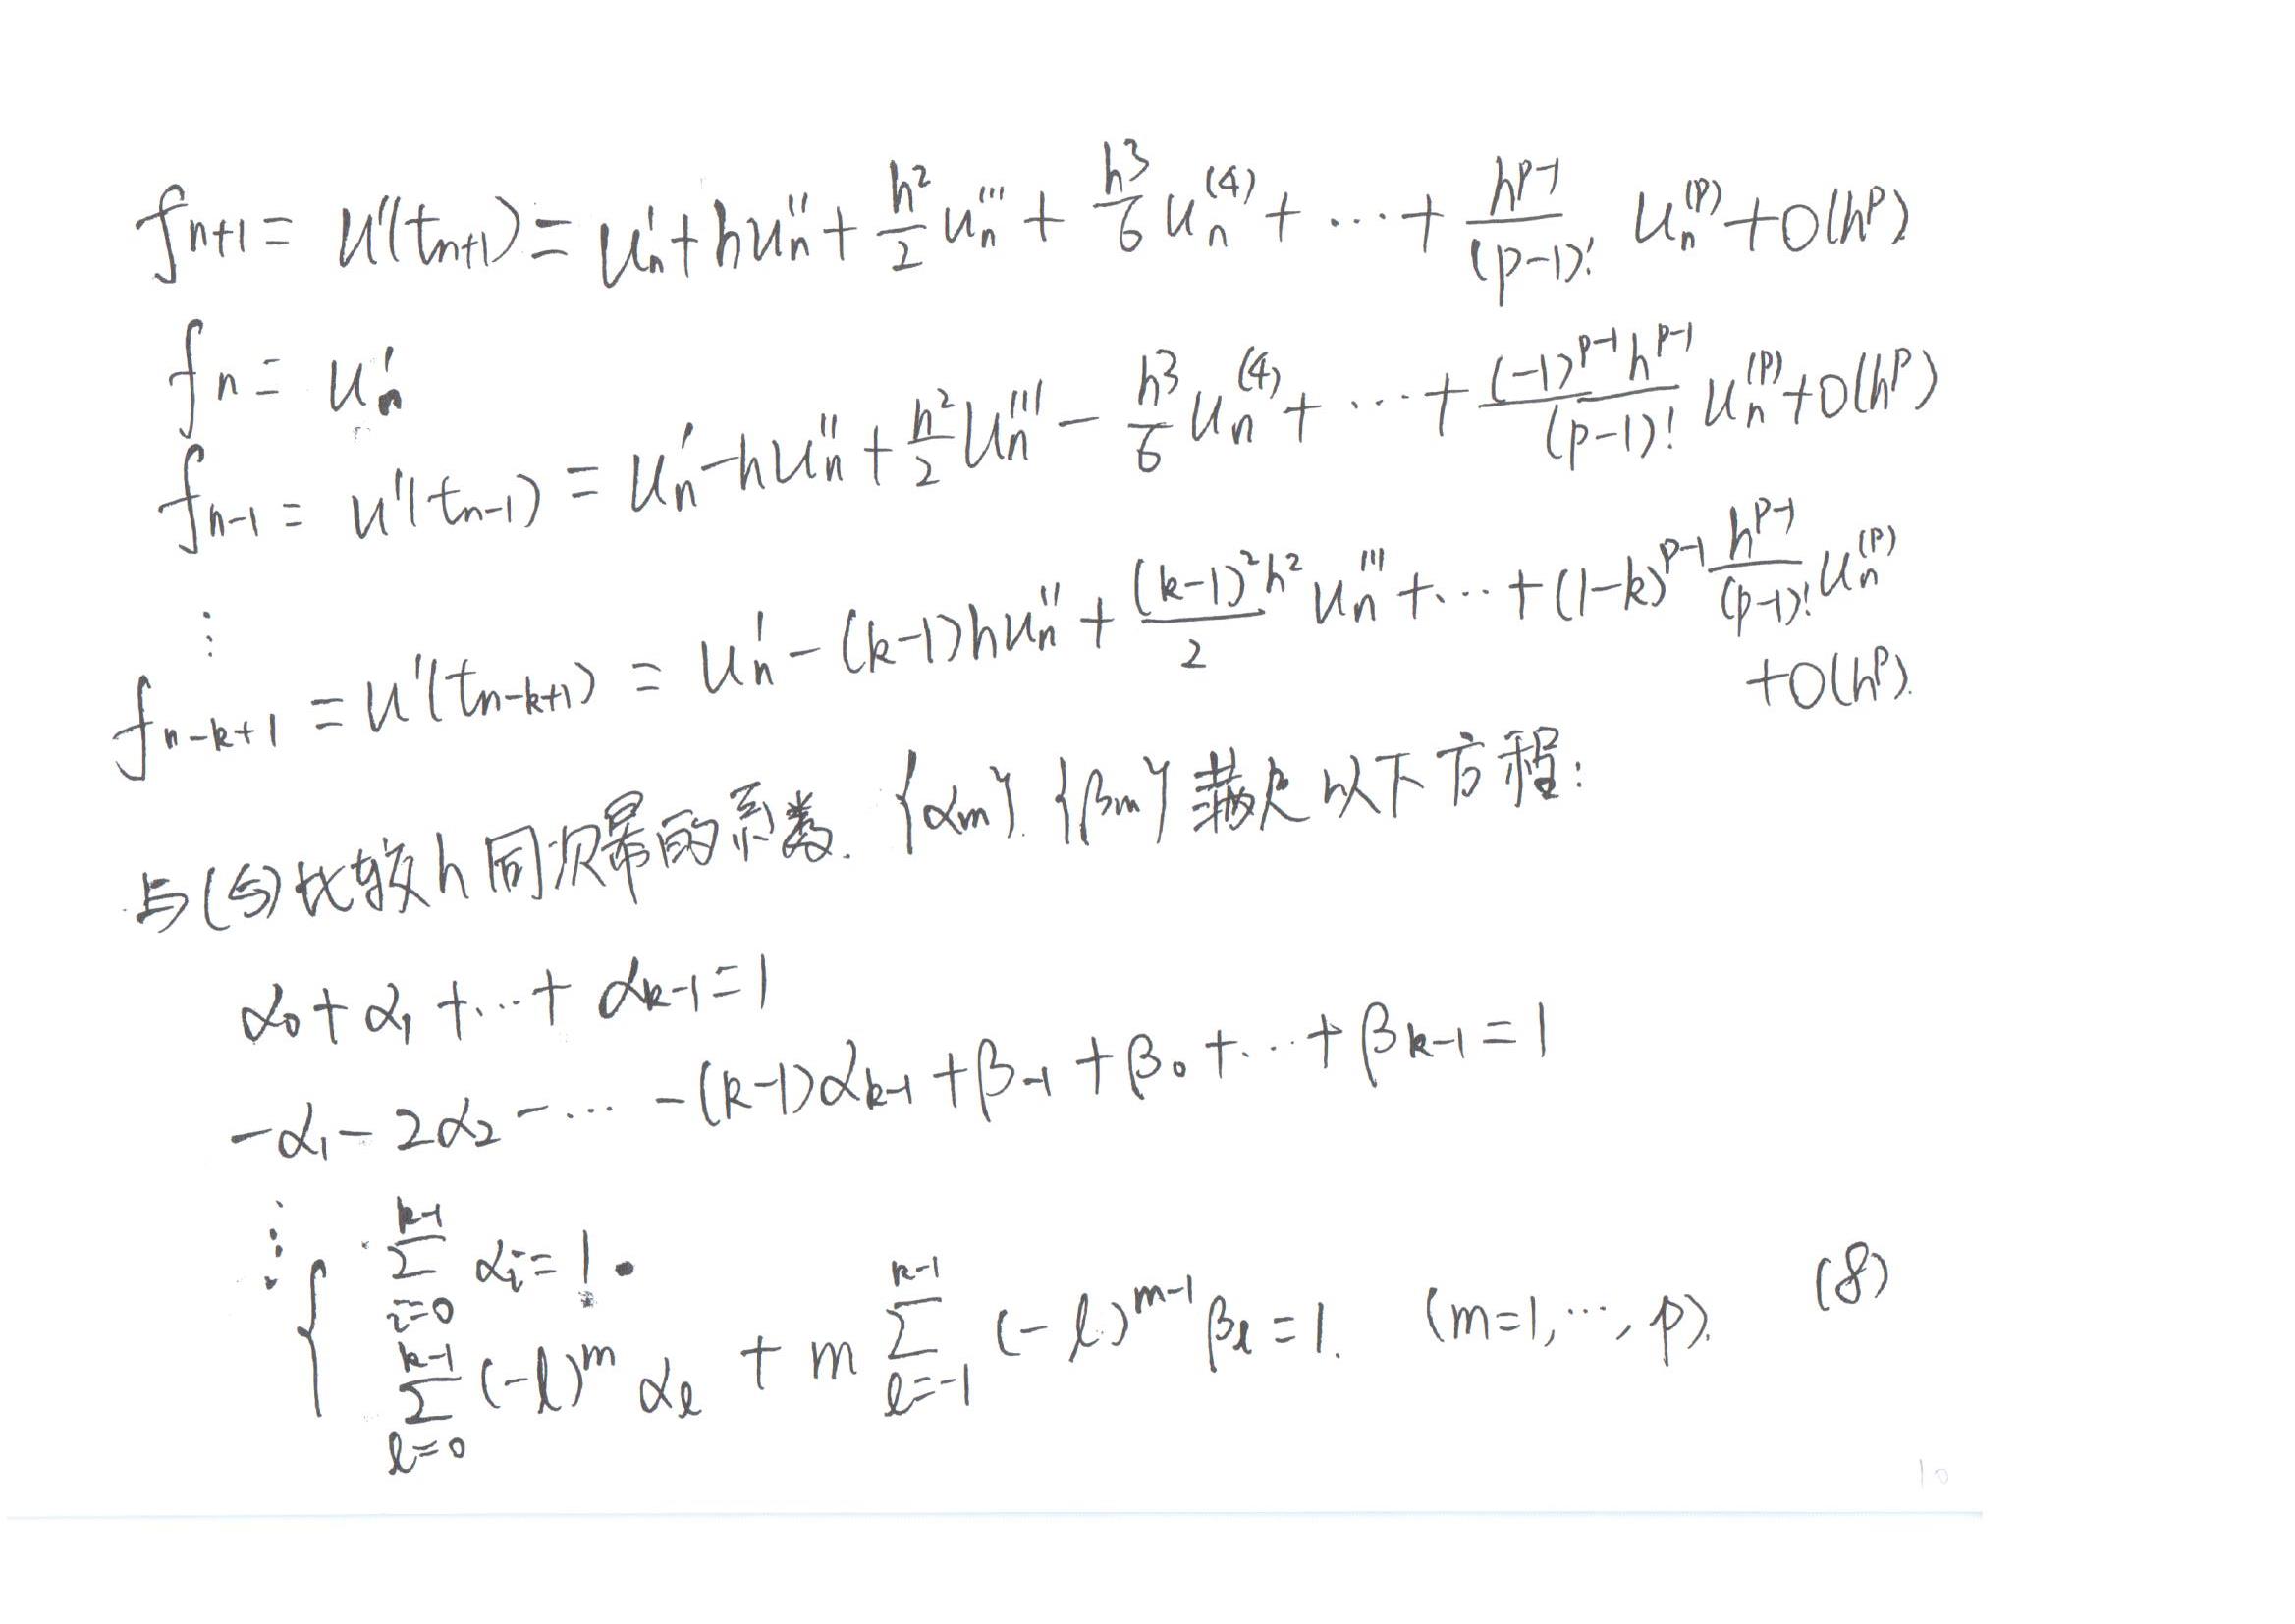 fn+1 = u'(tn+1) = un' + hun'' + h²/2 un''' + h³/6 un⁽⁴⁾ + ⋯ + h^(p-1)/(p-1)! un^(p) + O(h^p)
fn = un'
fn-1 = u'(tn-1) = un' - hun'' + h²/2 un''' - h³/6 un⁽⁴⁾ + ⋯ + (-1)^(p-1) h^(p-1)/(p-1)! un^(p) + O(h^p)
⋮
fn-k+1 = u'(tn-k+1) = un' - (k-1)hun'' + (k-1)²h²/2 un''' + ⋯ + (1-k)^(p-1) h^(p-1)/(p-1)! un^(p)
+O(h^p).
与(5)比较h同次幂的系数. {αm}. {βm} 满足以下方程:
α0 + α1 + ⋯ + αk-1 = 1
-α1 - 2α2 - ⋯ - (k-1)αk-1 + β-1 + β0 + ⋯ + βk-1 = 1
⋮
{ ∑_{i=0}^{k-1} αi = 1.
∑_{l=0}^{k-1} (-l)^m αl + m ∑_{l=-1}^{k-1} (-l)^(m-1) βl = 1. (m=1,⋯,p). (8)
10